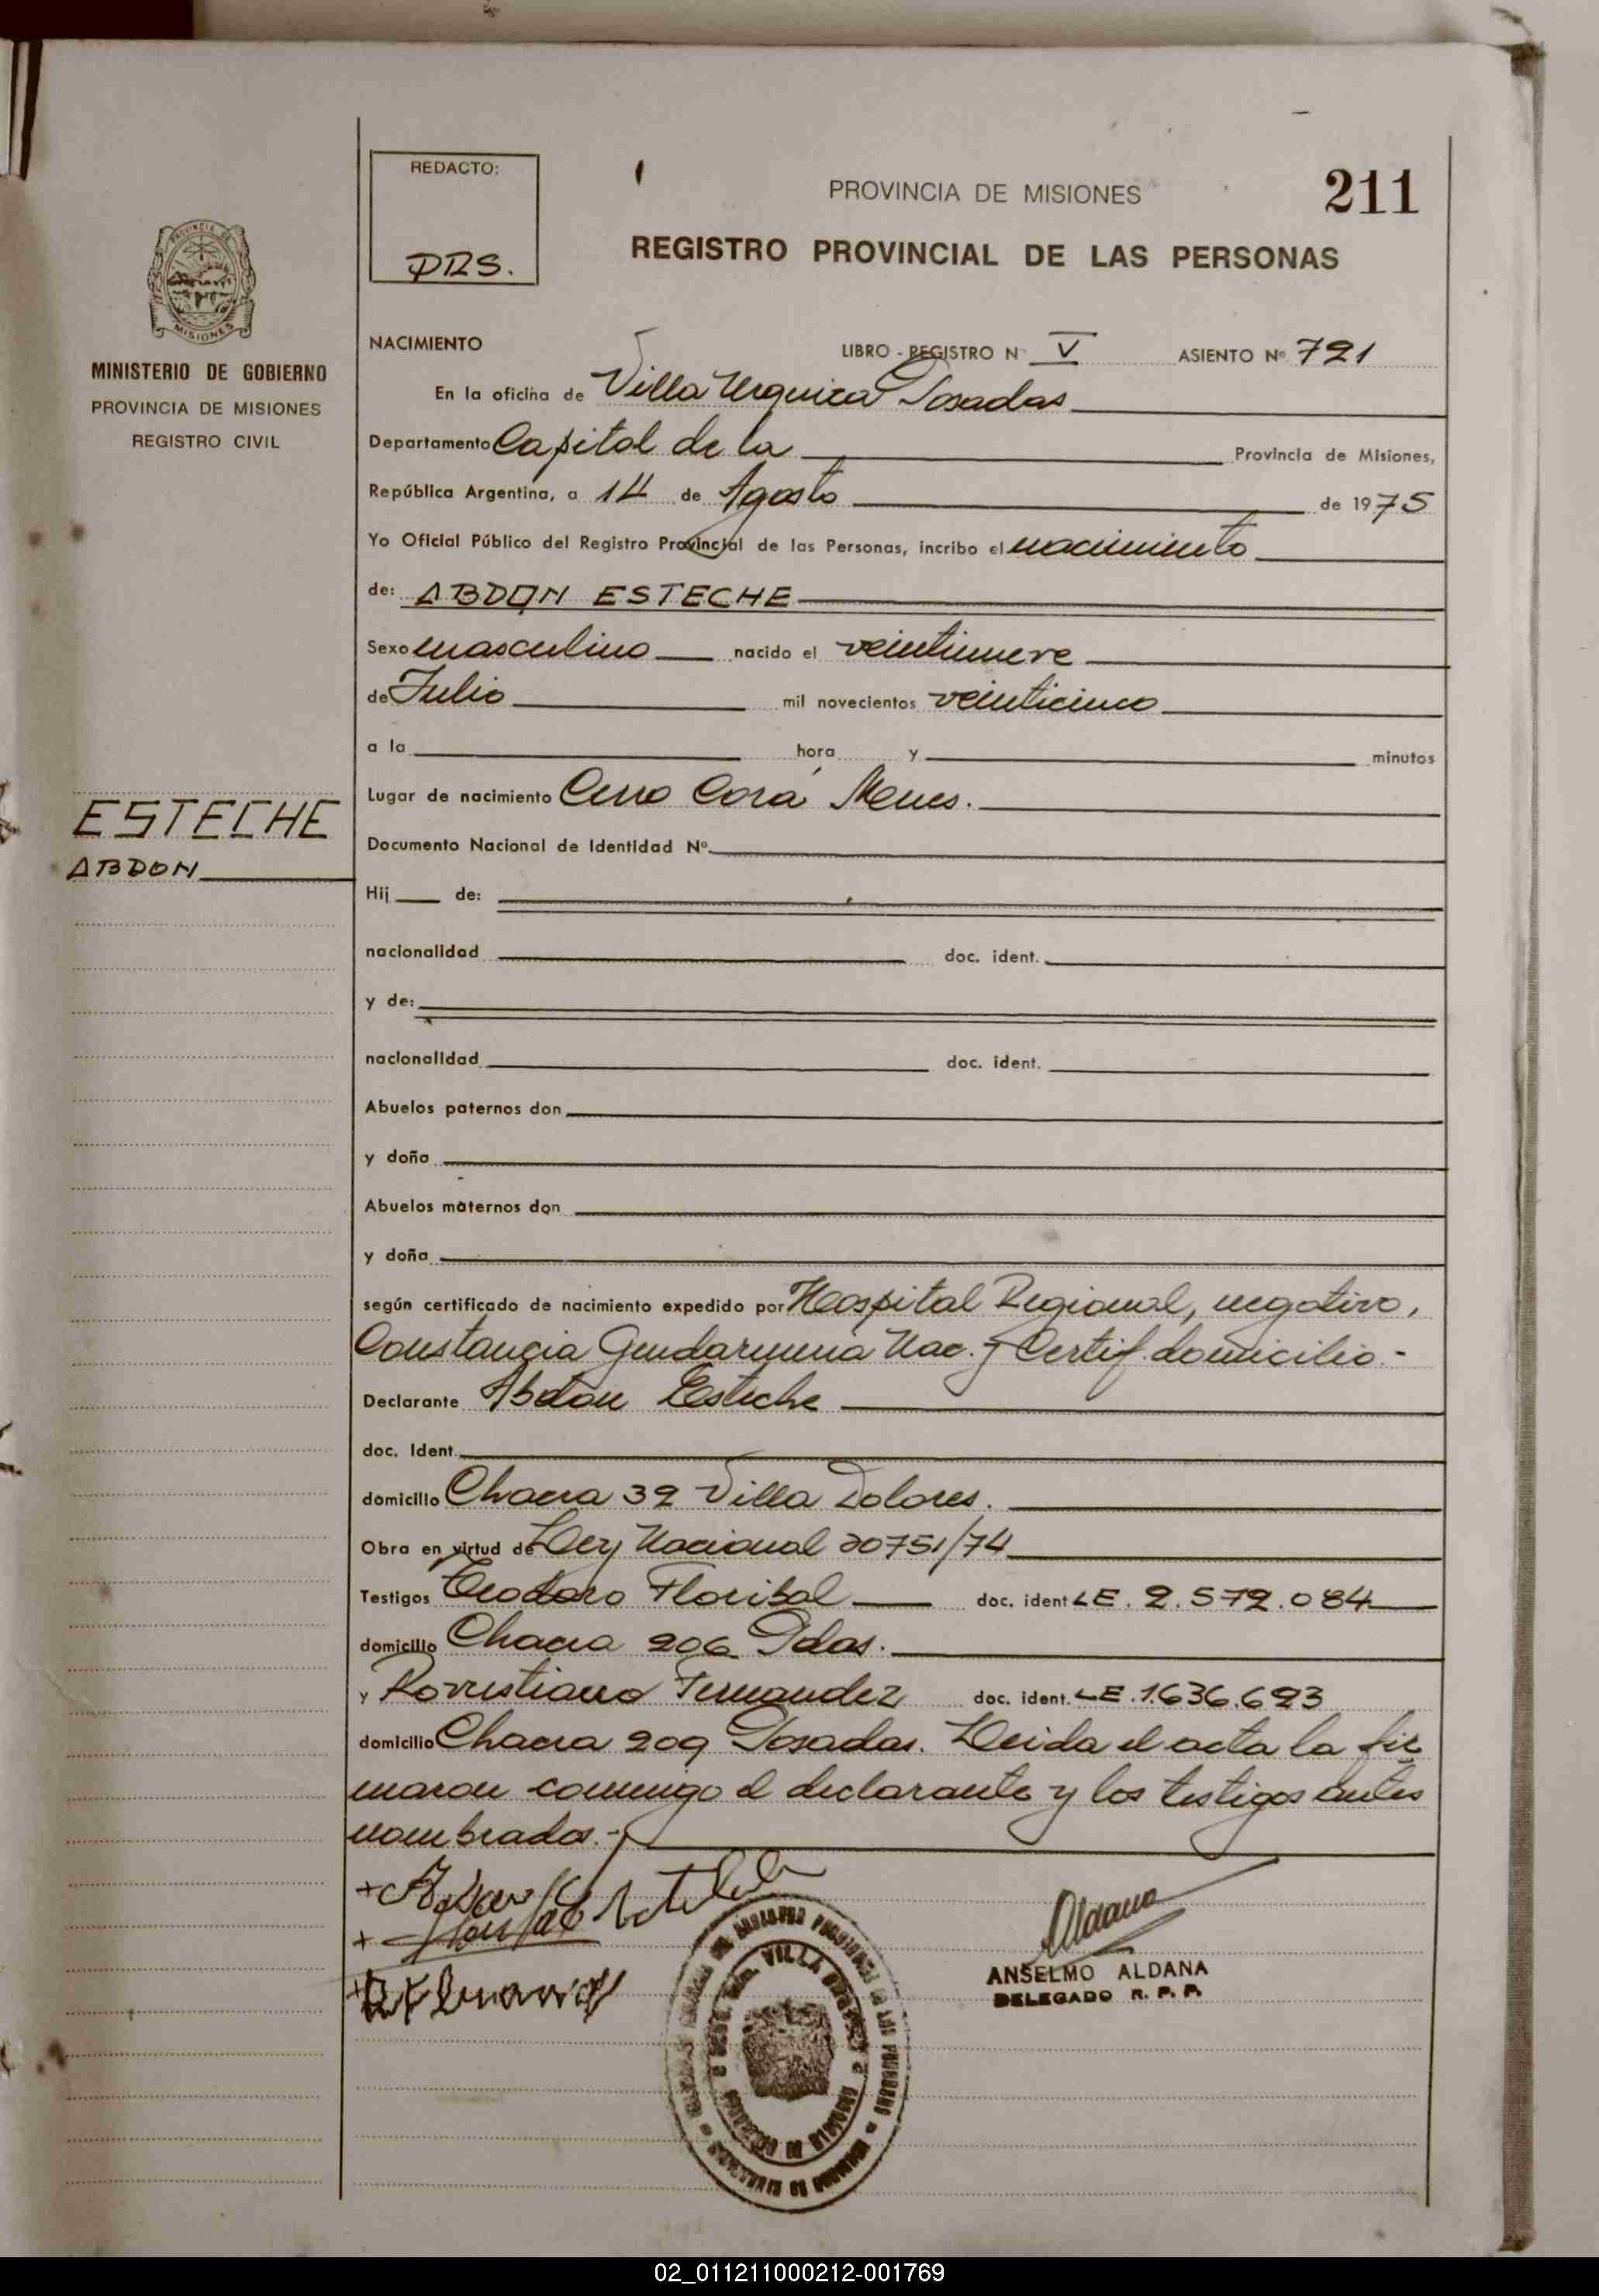 REDACTO:
DRS.
PROVINCIA DE MISIONES
211
REGISTRO PROVINCIAL DE LAS PERSONAS
PROVINCIA DE
MISIONES
MINISTERIO DE GOBIERNO
PROVINCIA DE MISIONES
REGISTRO CIVIL
NACIMIENTO
LIBRO - REGISTRO N° V ASIENTO Nº 721
En la oficina de Villa Urquiza Posadas
Departamento Capital de la Provincia de Misiones,
República Argentina, a 14 de Agosto de 1975
Yo Oficial Público del Registro Provincial de las Personas, incribo el nacimiento
de: ABDON ESTECHE
Sexo masculino nacido el veintinueve
de Julio mil novecientos veinticinco
a la hora y minutos
Lugar de nacimiento Cerro Corá Mnes.
ESTECHE
ABDON
Documento Nacional de Identidad Nº
Hij de:
nacionalidad doc. ident.
y de:
nacionalidad doc. ident.
Abuelos paternos don
y doña
Abuelos maternos don
y doña
según certificado de nacimiento expedido por Hospital Regional, negativo,
Constancia Gendarmeria Nac. y Certif. domicilio.-
Declarante Abdon Esteche
doc. Ident.
domicilio Chacra 32 Villa Dolores.
Obra en virtud de Ley Nacional 20751/74
Testigos Teodoro Floribal doc. ident LE. 2.572.084
domicilio Chacra 206 Pdas.
y Fernandez doc. ident. LE. 1.636.693
domicilio Chacra 209 Posadas. Leida el acta la fir
maron conmigo el declarante y los testigos antes
nombrados.-
Aldana
ANSELMO ALDANA
DELEGADO R. P. P.
VILLA
02_011211000212-001769